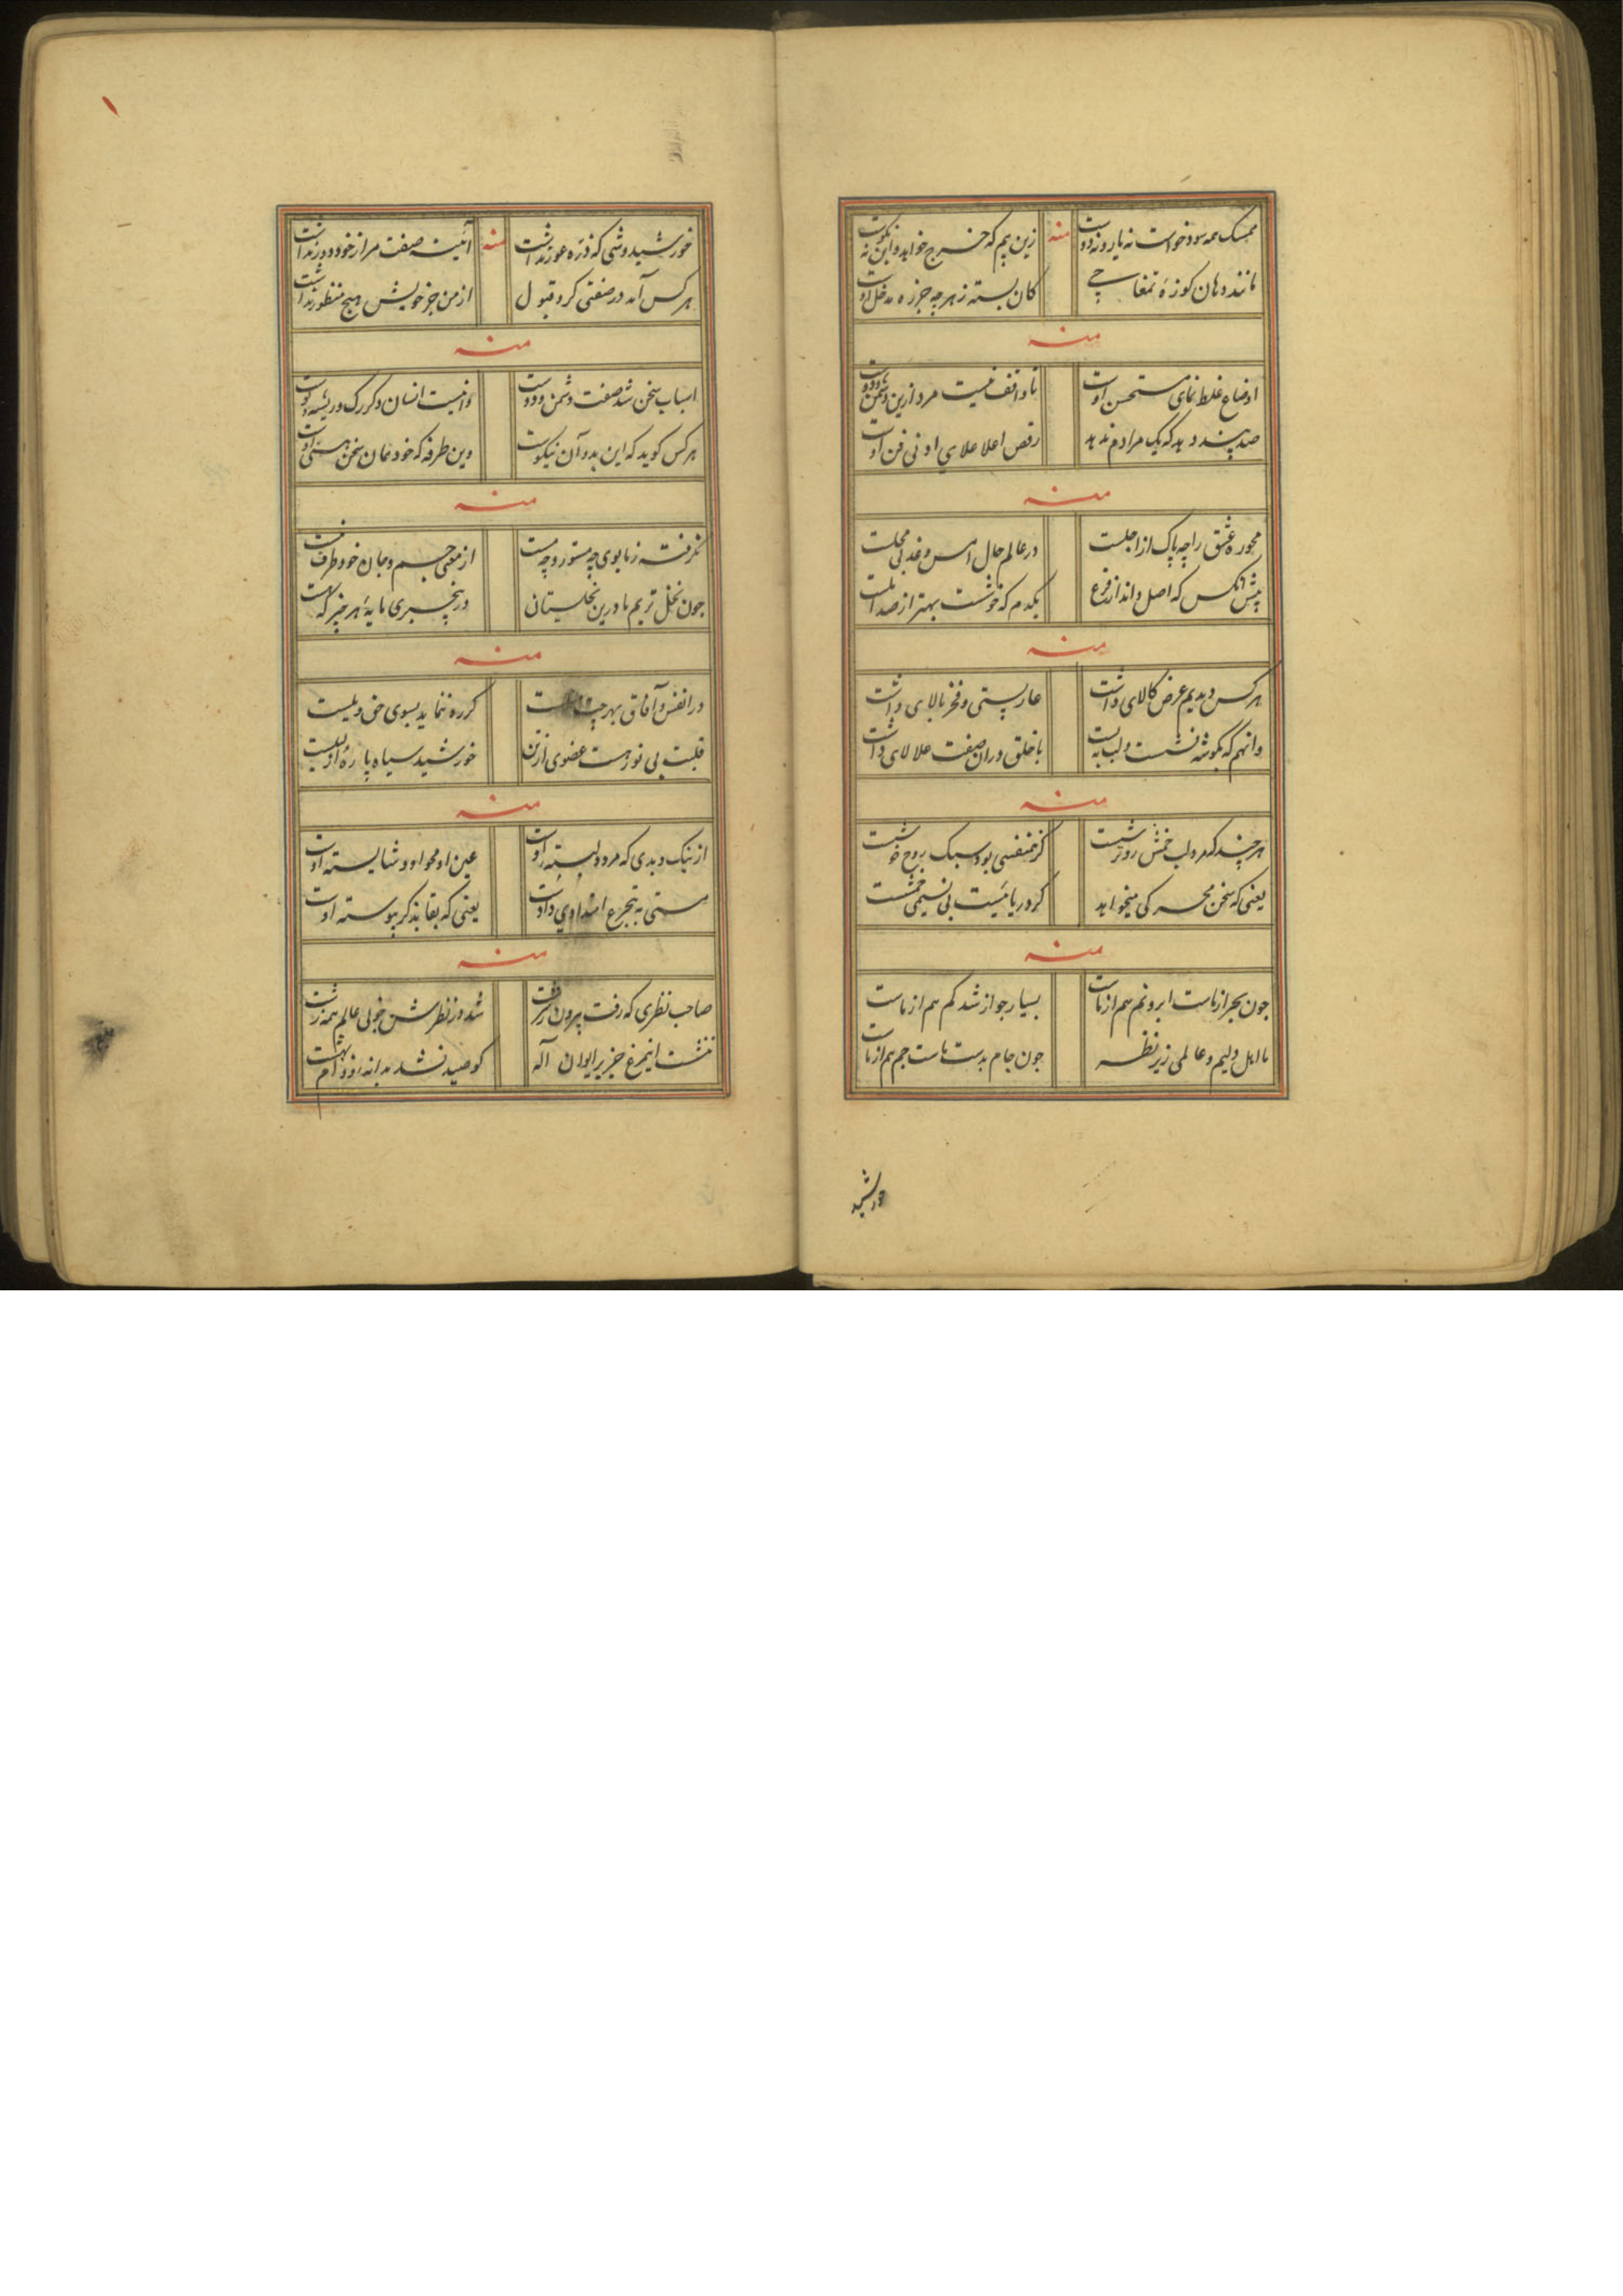 ممسک همه سود خواست نه یار و نه دوست
منه
زین بیم که خرج خواهد و این نه نکوست
مانند دهان کوزهٔ تمغاچی
کان بسته ز هر چه جز ره مدخل اوست
منه
اوضاع غلط نمای مستحسن اوست
تا واقف نیست مرد ازین دشمن و دوست
صد پند دهد که یک مرادم ندهد
رقص اعلا علای او نی فن اوست
منه
محو ره عشق را چه باک از اجلست
در عالم حال امس و غد بی محلست
پیش آنکس که اصل داند ز فروع
یکدم که خوشست بهتر از صد
منه
هر کس دیدیم عرض کالای داشت
عار پستی و فخر بالای داشت
وانهم که بگوشه نشست و لب بست
با خلق دران صفت علالای داشت
منه
هر چند که مرد لب خمش روترشیست
گر همنفسی بود سبک روح خوشست
یعنی که سخن محرکی میخواهد
گر دریائیست بی نسیمی خمشست
منه
چون بحر از ماست ابر و نم هم از ماست
بسیار جو از شد کم هم از ماست
ما اهل دلیم و عالمی زیر نظر
چون جام بدست ماست جم هم از ماست
خورشید
خورشیدوشی که ذره عور نداشت
منه
آئینه صفت مرا ز خود دور نداشت
هر کس آمد در صفتی کرد قبول
از من جز خویش هیچ منظور نداشت
منه
اسباب سخن شد صفت دشمن و دوست
وانیست انسان و گر رگ و ریشه و
هر کس گوید که این بد و آن نیکوست
وین طرفه که خود همان سخن هستی اوست
منه
نگرفته ز ما بوی چه مستور و چه مست
از معنی جسم و جان خود طرف
چون نخل تریم ما درین نخلستان
در بیخبری مایهٔ هر چیز که هست
منه
در انفس و آفاق بهر
گر ره ننماید بسوی حق ویلیست
قلبت بی نور هست عضوی از تن
خورشید سیاه پارهٔ
منه
از نیک و بدی که مرد دلبسته اوست
عین او محو او و شایسته اوست
مستی به تجرع
یعنی که بقا بذکر پیوسته اوست
منه
صاحب نظری که رفت بیرون ز
شد در نظرش خوبی عالم همه زشت
ننشست اینمرغ جز بر ایوان آله
کو صید نشد بدانه و دام بهشت